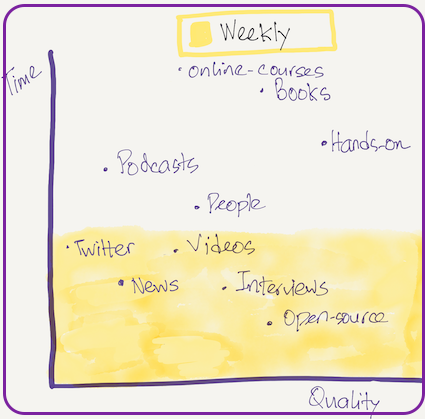 Weekly
Time
online-courses
Books
Hands-on
Podcasts
People
Twitter
Videos
News
Interviews
Open-source
Quality